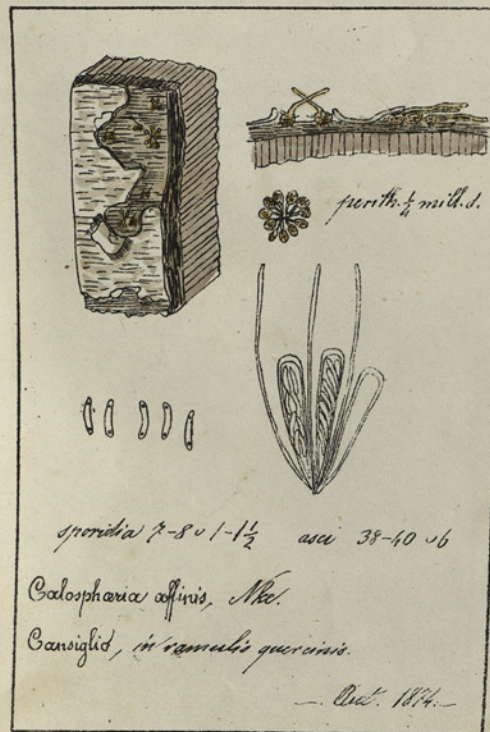 perith. ¼ mill. d.
sporidia 7-8 ᴗ 1-1½ asci 38-40 ᴗ 6
Calosphæria affinis, Nke.
Cansiglio, in ramulis quercinis.
— Oct. 1874.—